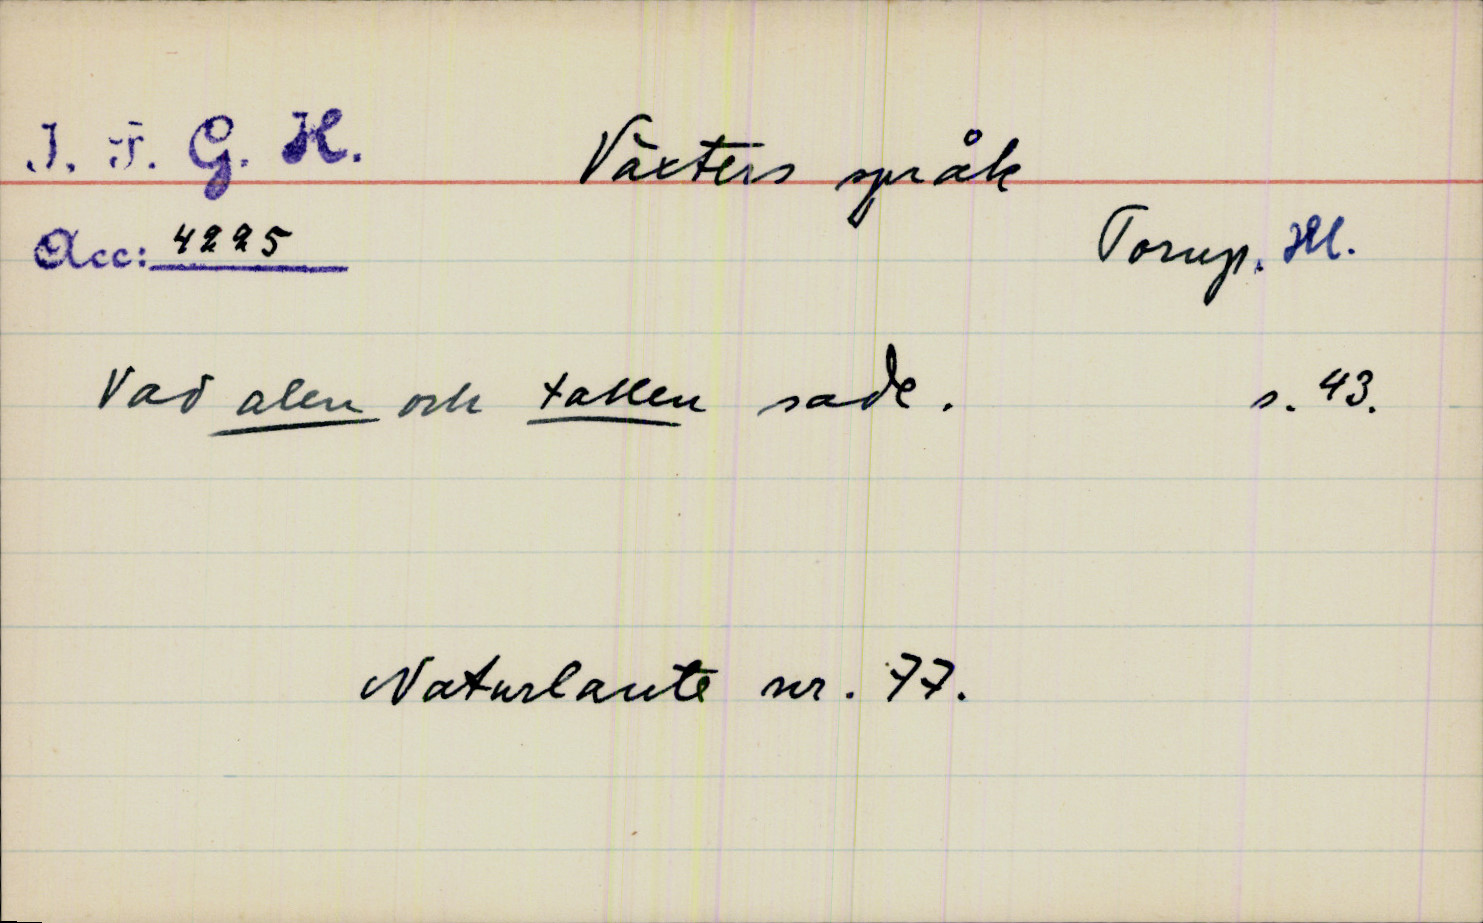 I. F. G. H.
Växters språk
Acc: 4225
Torup. Hl.
Vad alen och tallen sade. s. 43.
Naturlaute nr. 77.